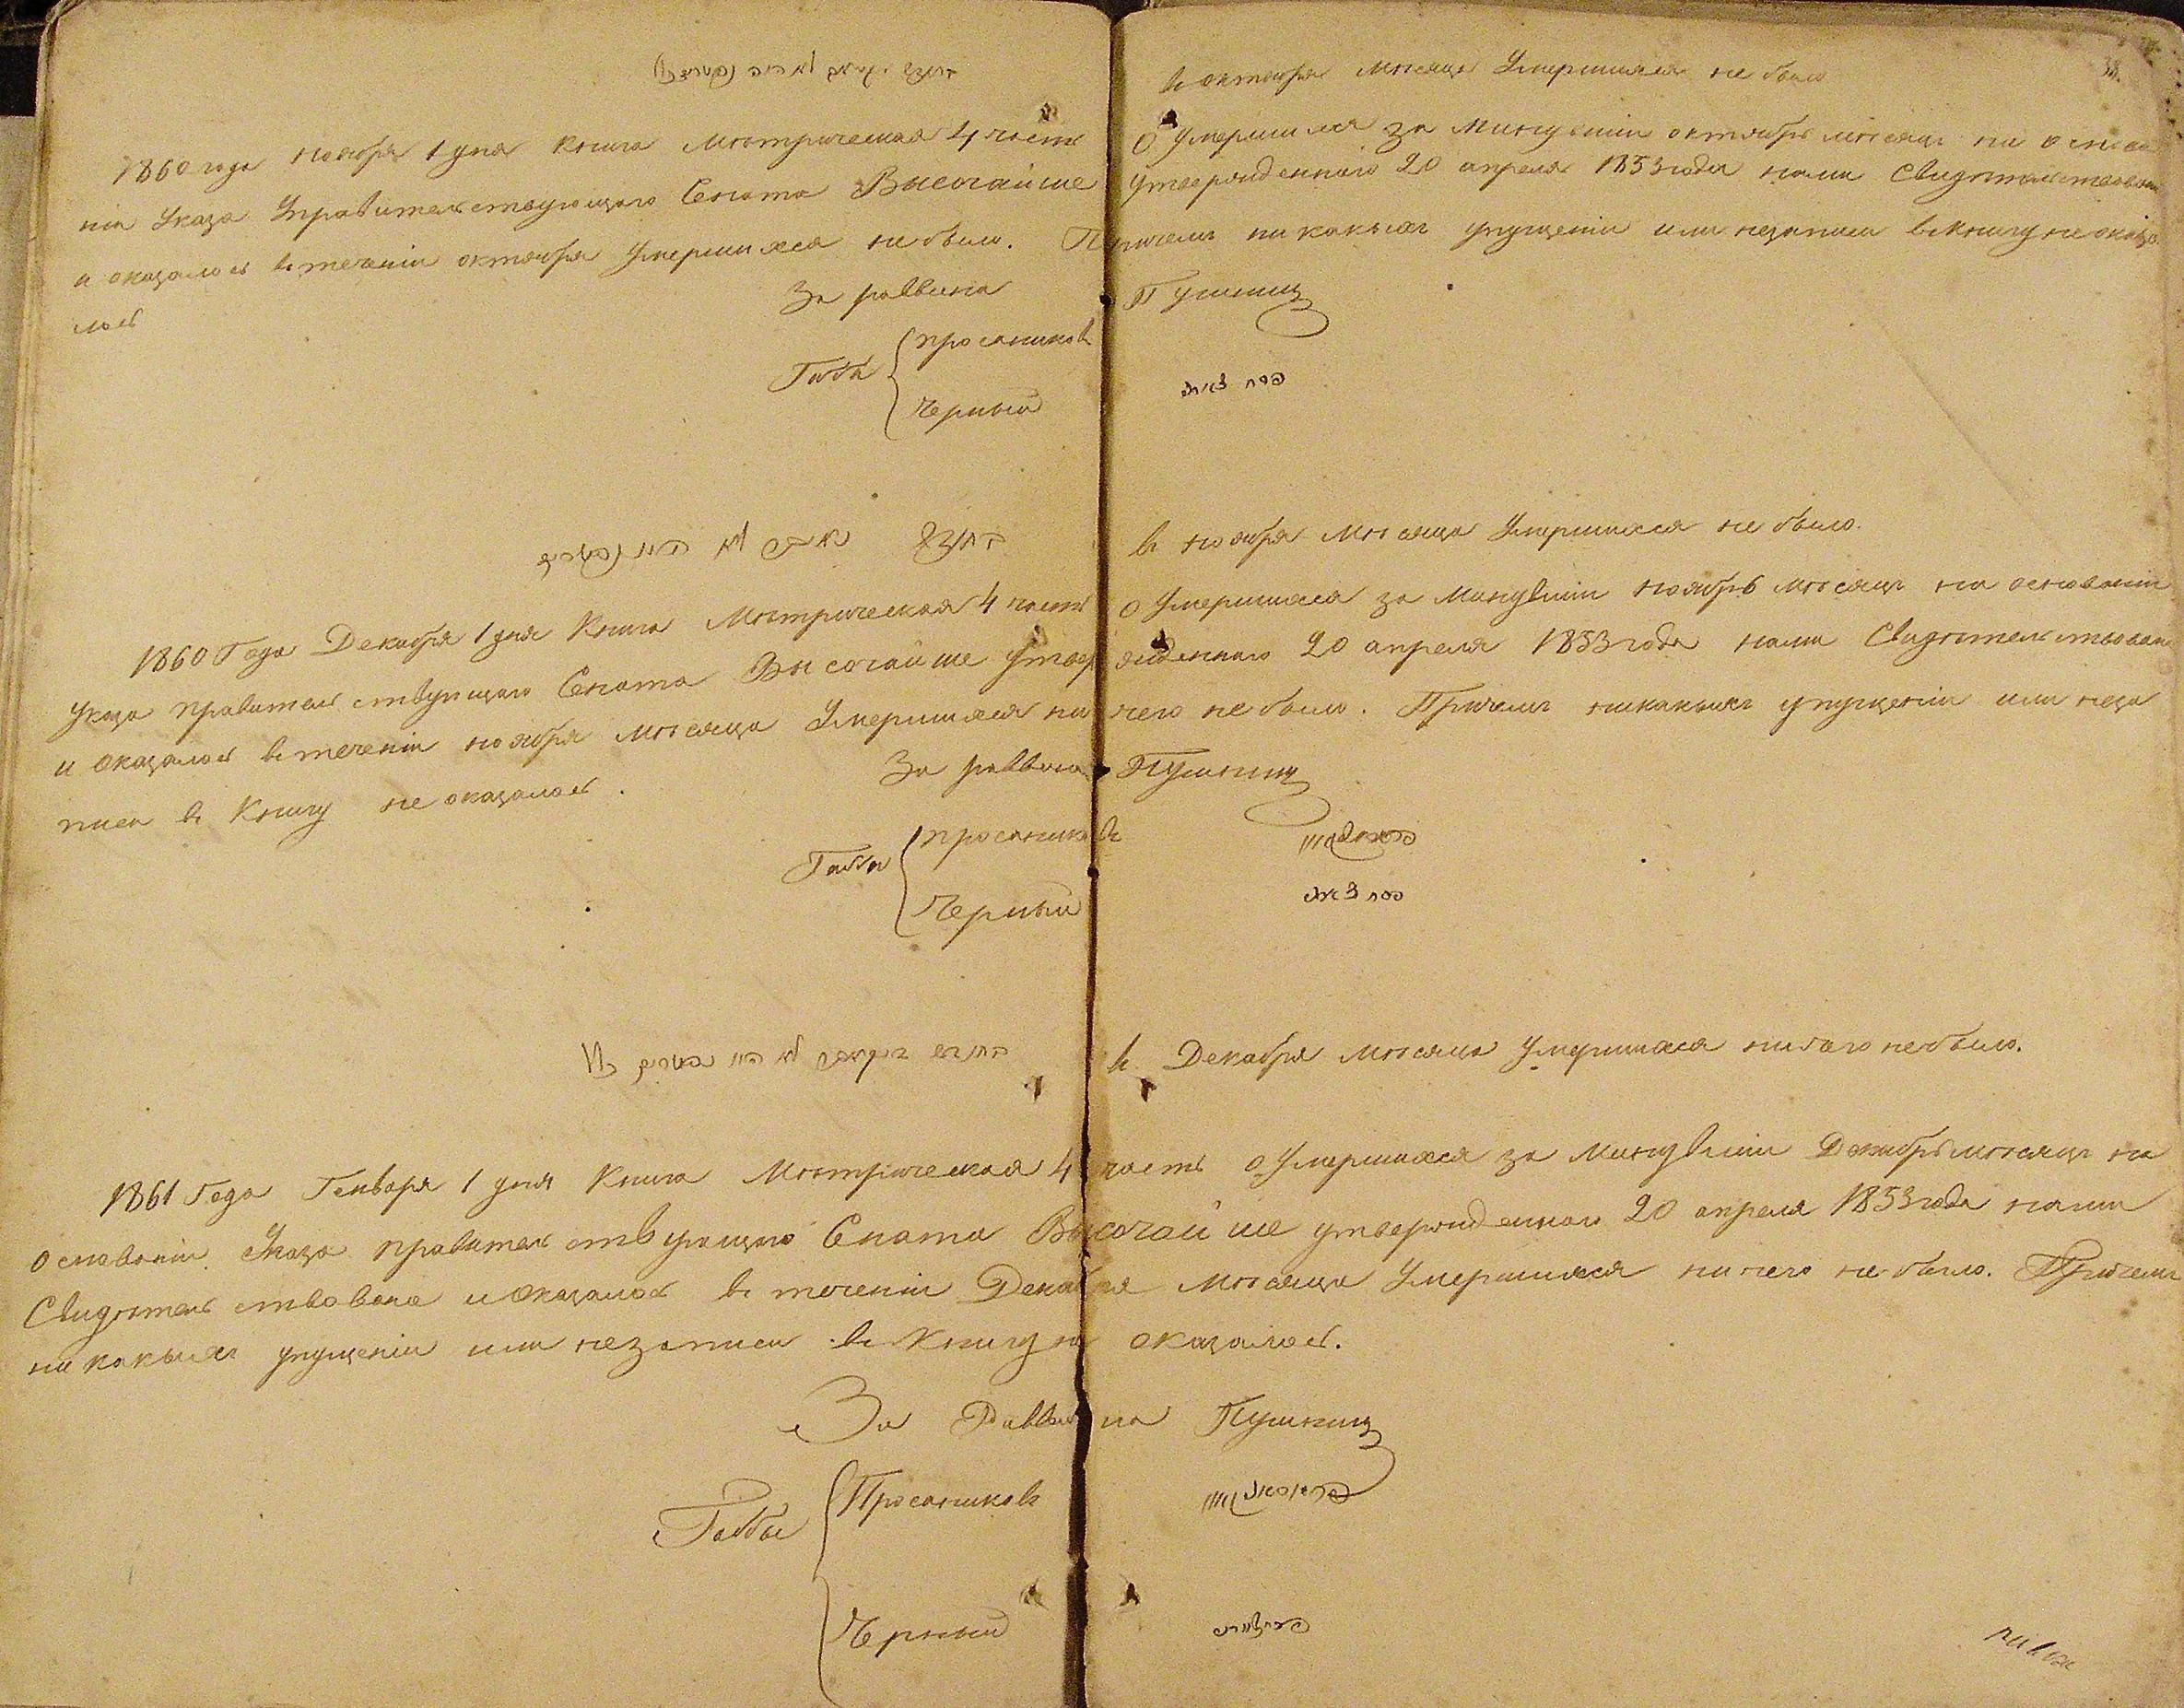 в октября месяца Умершихся не было
38.
1860 года ноября 1 дня Книга Метрическая 4 часть о Умершихся за Минувший октябрь месяц на основа
нии Указа Правительствующаго Сената Высочайше утвержденнаго 20 апреля 1853 года нами Свидетельствована
и оказалось в течении октября Умершихся не было. Причем никаких упущений или незаписи в книгу не оказа
лось
За раввина Пушниц
Габа Просяников
Черный
החודש נאיאבר לא היו נפטרים
в ноября Месяца Умершихся не было.
1860 Года Декабря 1 дня Книга Метрическая 4 часть о Умершихся за Минувший ноябрь месяц на основании
Указа правительствующаго Сената Высочайше утвержденнаго 20 апреля 1853 года нами Свидетельствована
и оказалось в течении ноября Месяца Умершихся ничего не было. Причем никаких упущений или неза
писи в Книгу не оказалось.
За раввина Пушниц
Габа Просяников
Черный
החודש דיקאבר לא היו נפטרים
в Декабря месяца умершихся ничего не было.
1861 Года Генваря 1 дня Книга Метрическая 4 часть о Умершихся за Минувший Декабрь месяц на
основании Указа правительствующаго Сената Высочайше утвержденнаго 20 апреля 1853 года нами
Свидетельствована и оказалось в течении Декабря Месяца Умершихся ничего не было. Причем
никаких упущений или незаписи в Книгу не оказалось.
За Раввина Пушниц
Габы Просяников
Черный